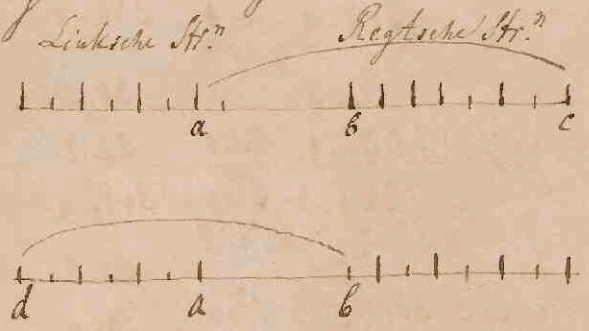 Linksche Str.ⁿ Regtsche Str.ⁿ
a b c
d a b